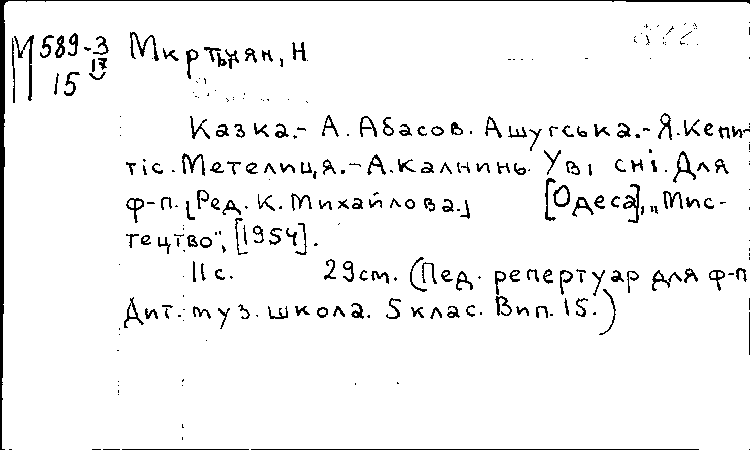 М589-3/17 Мкртычян, Н
15
Казка.- А. Абасов. Ашугська.- Я. Кепи-
тіс. Метелиця.- А. Калнинь. Уві сні. Для
ф-п. [Ред. К. Михайлова.] [Одеса], „Мис-
тецтво", [1954].
11 с. 29 см. (Пед. репертуар для ф-п
Дит. муз. школа. 5 клас. Вип. 15.)